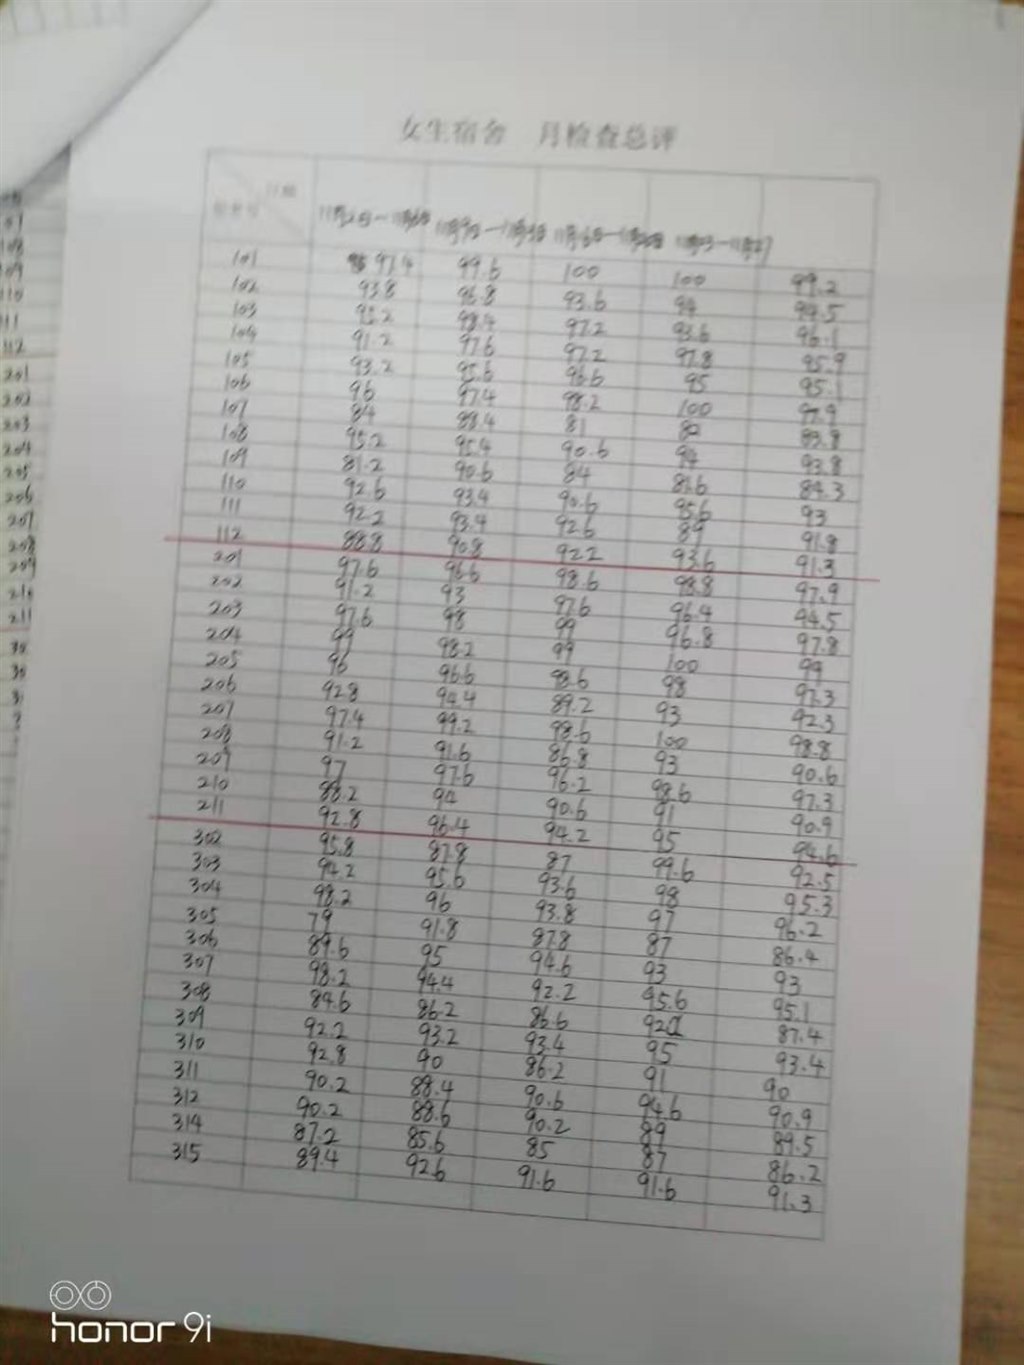 女生宿舍 月检查总评
日期
11月2日—11月6日 11月9日—11月13日 11月16日—11月20日 11月23—11月27
101 97.4 99.6 100 100 99.2
102 93.8 96.8 93.6 94 94.5
103 95.2 98.4 97.2 93.6 96.1
104 91.2 97.6 97.2 97.8 95.9
105 93.2 95.6 96.6 95 95.1
106 96 97.4 98.2 100 97.9
107 84 88.4 81 82 83.8
108 95.2 95.4 90.6 94 93.8
109 81.2 90.6 84 81.6 84.3
110 92.6 93.4 90.6 95.6 93
111 92.2 93.4 92.6 89 91.8
112 88.8 90.8 92.2 93.6 91.3
201 97.6 96.6 98.6 98.8 97.9
202 91.2 93 97.6 96.4 94.5
203 97.6 98 99 96.8 97.8
204 99 98.2 99 100 99
205 96 96.6 98.6 98 97.3
206 92.8 94.4 89.2 93 92.3
207 97.4 99.2 98.6 100 98.8
208 91.2 91.6 86.8 93 90.6
209 97 97.6 96.2 98.6 97.3
210 88.2 94 90.6 91 90.9
211 92.8 96.4 94.2 95 94.6
302 95.8 87.8 87 99.6 92.5
303 94.2 95.6 93.6 98 95.3
304 98.2 96 93.8 97 96.2
305 79 91.8 87.8 87 86.4
306 89.6 95 94.6 93 93
307 98.2 94.4 92.2 95.6 95.1
308 84.6 86.2 86.6 92 87.4
309 92.2 93.2 93.4 95 93.4
310 92.8 90 86.2 91 90
311 90.2 88.4 90.6 94.6 90.9
312 90.2 88.6 90.2 89 89.5
314 87.2 85.6 85 87 86.2
315 89.4 92.6 91.6 91.6 91.3
honor 9i